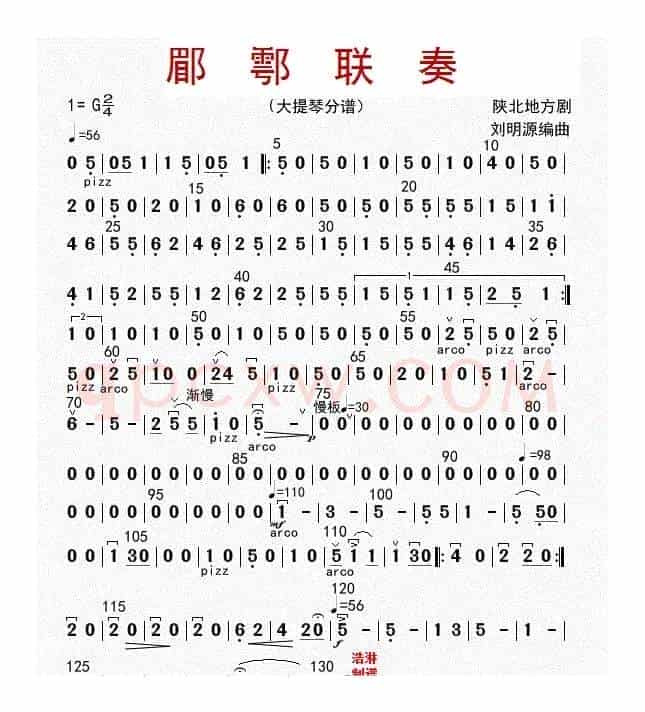 郿鄠联奏
1=G 2/4 （大提琴分谱） 陕北地方剧
♩=56 刘明源编曲
5 10
0 5|05 1|1 5|05 1‖:5 0|5 0|1 0|5 0|1 0|4 0|5 0|
pizz
15 20
2 0|5 0|2 0|1 0|6 0|6 0|2 5|2 5|5 5|5 5|1 5|1 1|
25 30 35
4 6|5 5|6 2|4 6|2 5|2 5|1 5|1 5|5 5|4 6|1 4|2 6|
40 1 45
4 1|5 2|5 5|1 2|6 2|2 5|5 5|1 5|5 1|1 5|2 5 1:‖
2 50 55
1 0|1 0|1 0|5 0|1 0|5 0|5 0|5 0|5 0|2 5|5 0|2 5|
arco pizz arco
60 65
5 0|2 5|10 0|24 5|1 0|5 0|5 0|2 0|1 0|5 1|2 -|
pizz arco pizz arco
70 渐慢 75 慢板♩=30 80
6 -|5 -|2 5 5|1 0|5 -|0 0|0 0|0 0|0 0|0 0|0 0|
pizz arco p
85 90 ♩=98
0 0|0 0|0 0|0 0|0 0|0 0|0 0|0 0|0 0|0 0|0 0|0 0|
95 ♩=110 100
0 0|0 0|0 0|0 0|0 0|1 -|3 -|5 -|5 5|1 -|5 50|
mf
arco
105 110
0 0|1 30|0 0|1 0|5 0|1 0|5 1 1|1 30‖:4 0|2 20:‖
pizz arco
115 120
♩=56
2 0|2 0|2 0|2 0|6 2|4 20|5 -|5 -|1 3|5 1|
f
125 130 浩淋
制谱